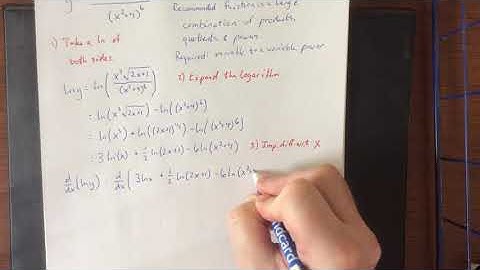 y
(x²+4)⁶
Recommended: function is a large
combination of products,
quotients & powers.
Required: variable to a variable power
1) Take a ln of
both sides.
ln y = ln( x³√(2x+1) / (x²+4)⁶ )
2) Expand the logarithm
= ln(x³√(2x+1)) - ln((x²+4)⁶)
= ln(x³) + ln((2x+1)^½) - ln((x²+4)⁶)
= 3 ln(x) + ½ ln(2x+1) - 6 ln(x²+4)
3) Imp. diff. wrt X
d/dx (ln y) d/dx ( 3 ln x + ½ ln(2x+1) - 6 ln(x²+